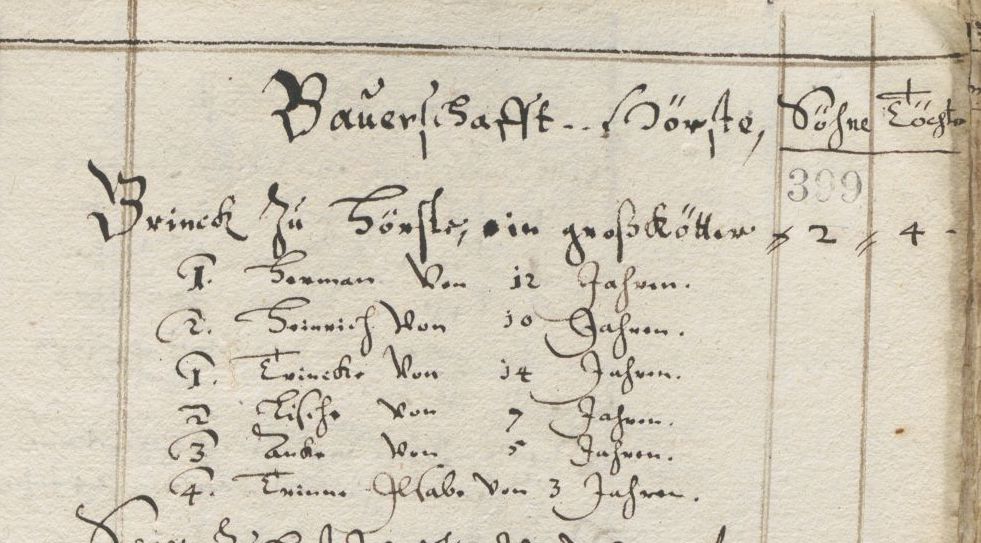 Bauerschafft Hörste, Söhne Töchte
399
Brinck zu Hörste, ein großkötter 2 4
1. Herman von 12 Jahren.
2. Heinrich von 10 Jahren.
1. Trincke von 14 Jahren.
2 Lische von 7 Jahren.
3 Anke von 5 Jahren.
4. Trinne Ilsabe von 3 Jahren.